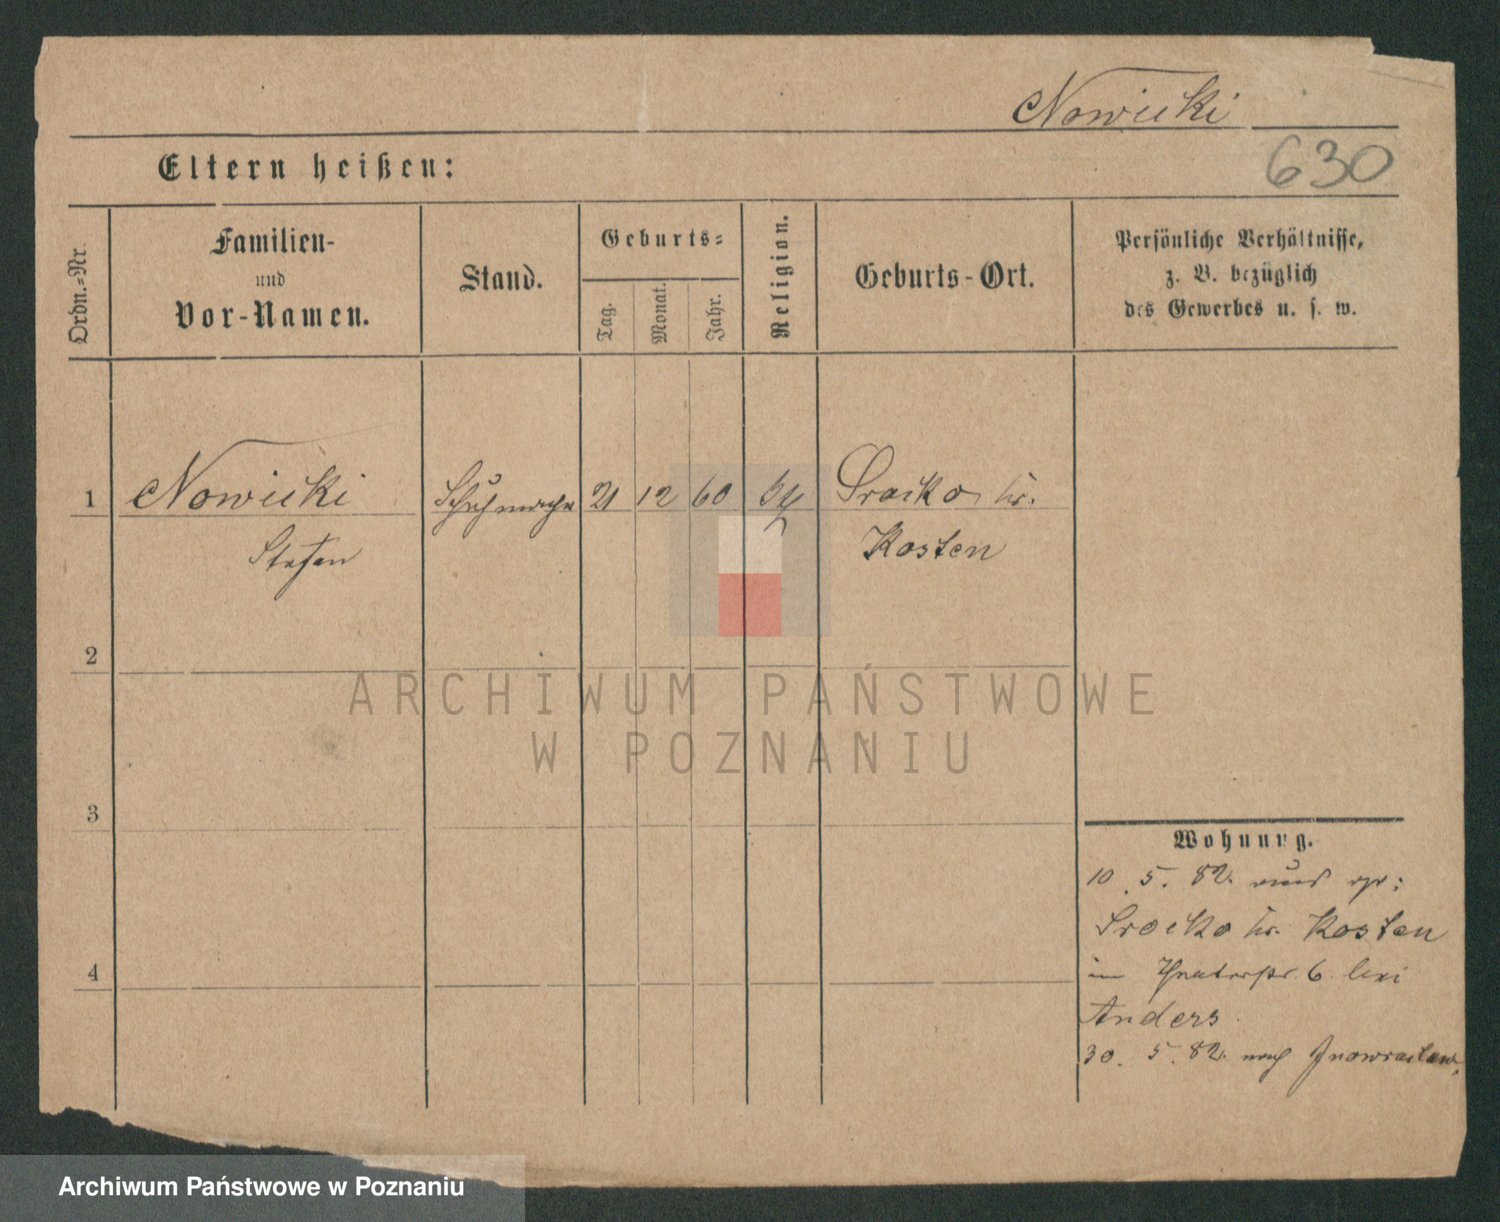 Nowicki
630
Eltern heißen:
Ordn.-Nr.
Familien-
und
Vor-Namen.
Stand.
Geburts-
Tag.
Monat.
Jahr.
Religion.
Geburts-Ort.
Persönliche Verhältnisse,
z. B. bezüglich
des Gewerbes u. s. w.
1 Nowicki Schuhmacher 21 12 60 Srocko kr.
Stefan Kosten
2
3
4
Wohnung.
10. 5. 82.
Srocko kr. Kosten
in Theaterstr. 6. bei
Anders.
30. 5. 82. nach Inowraclaw.
ARCHIWUM PAŃSTWOWE
W POZNANIU
Archiwum Państwowe w Poznaniu